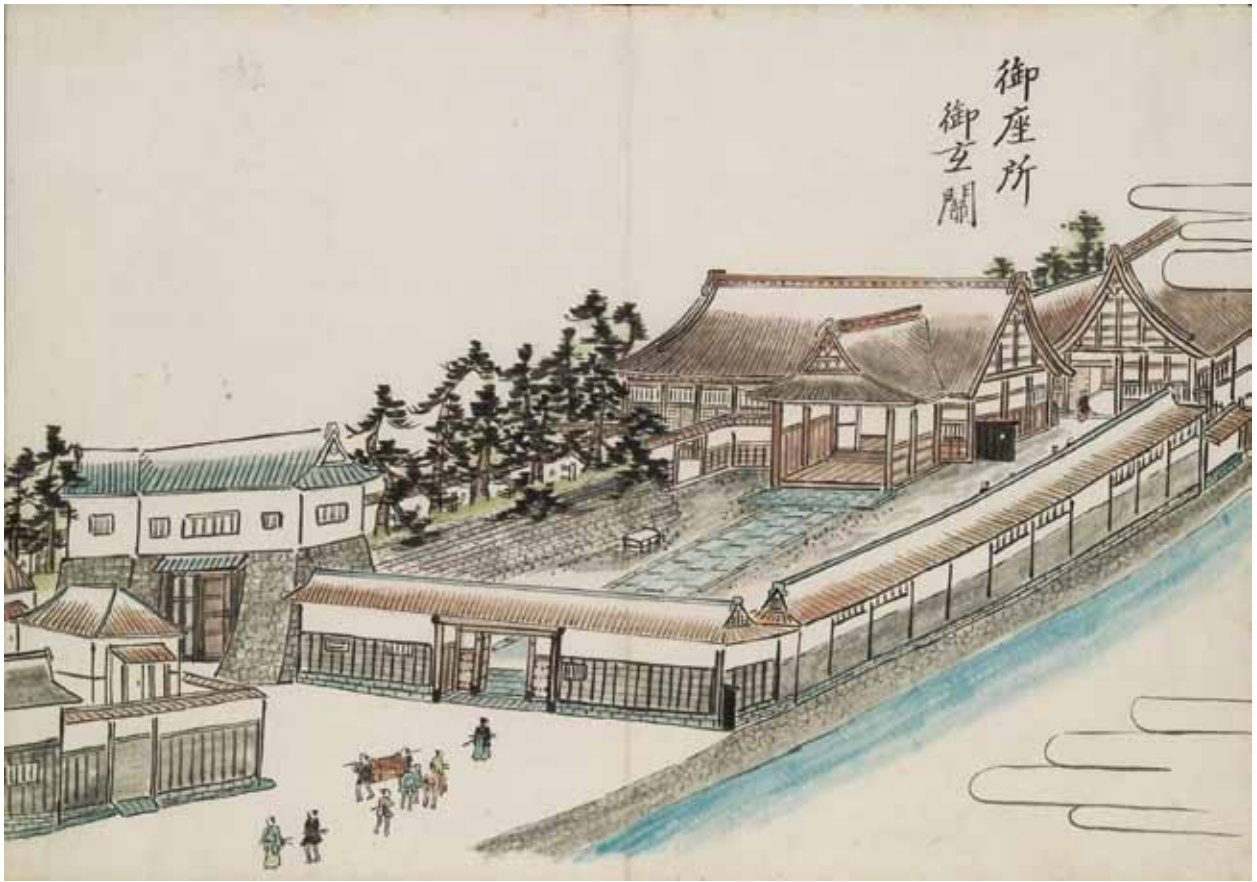 御座所
御玄關